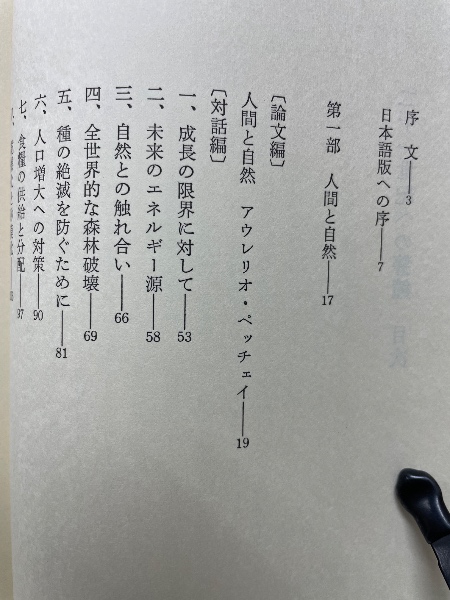 序 文——3
日本語版への序——7
第一部 人間と自然——17
〔論文編〕
人間と自然 アウレリオ・ペッチェイ——19
〔対話編〕
一、成長の限界に対して——53
二、未来のエネルギー源——58
三、自然との触れ合い——66
四、全世界的な森林破壊——69
五、種の絶滅を防ぐために——81
六、人口増大への対策——90
七、食糧の供給と分配——97